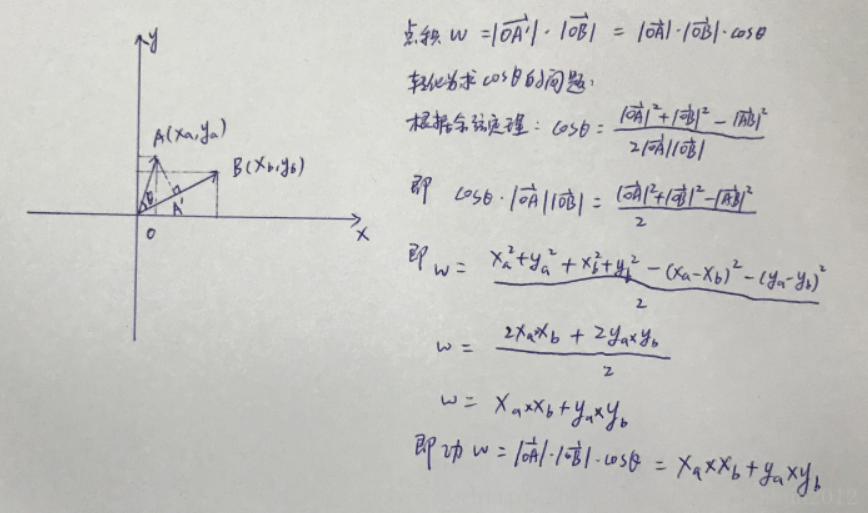 y
A(xa,ya)
B(xb,yb)
θ
A'
O
x
点积 W = |OA'|·|OB| = |OA|·|OB|·cosθ
转化为求cosθ的问题.
根据余弦定理: cosθ = (|OA|²+|OB|²-|AB|²) / 2|OA||OB|
即 cosθ·|OA||OB| = (|OA|²+|OB|²-|AB|²) / 2
即 w = (xa²+ya²+xb²+yb²-(xa-xb)²-(ya-yb)²) / 2
w = (2xa×xb + 2ya×yb) / 2
w = xa×xb+ya×yb
即功 w = |OA|·|OB|·cosθ = xa×xb+ya×yb